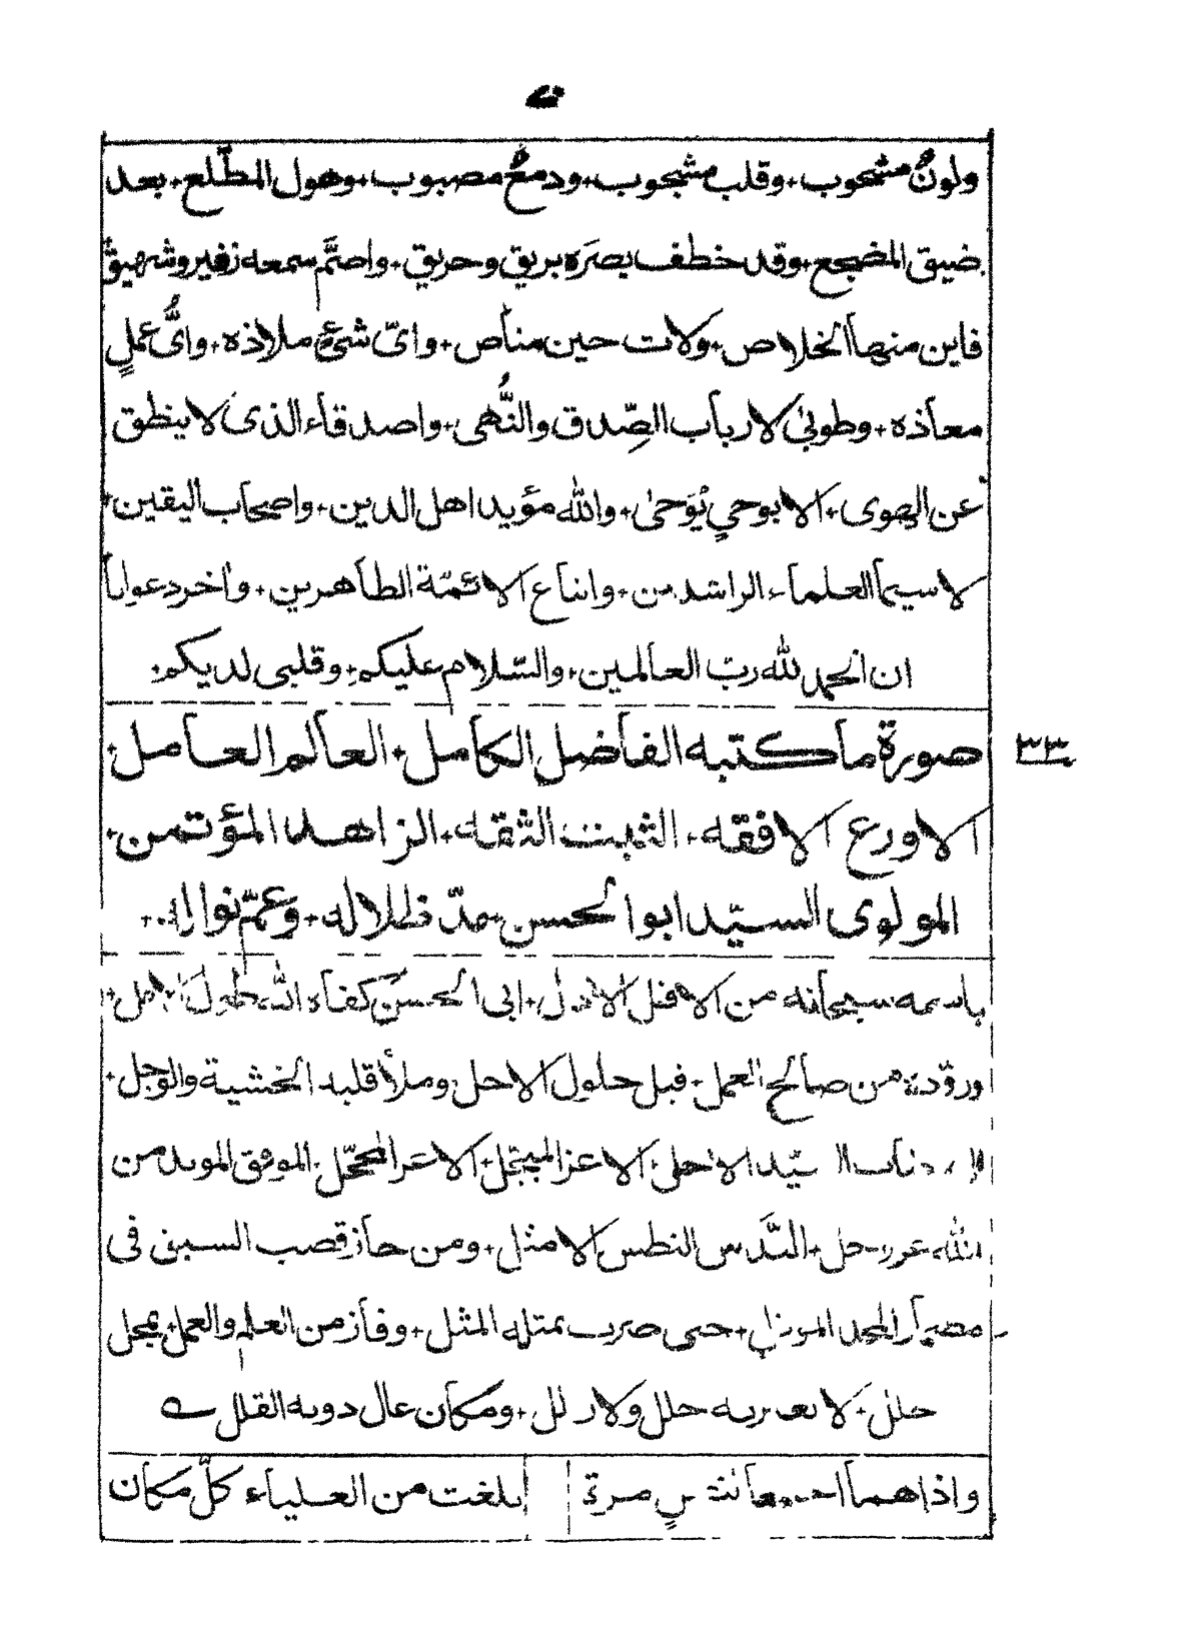 ولونٌ مشحوب + وقلب مشجوب + ودمعٌ مصبوب + وهول المطّلع + بعد
ضيق المضجع + وقد خطف بصَره بريق وحريق + واصمَّ سمعه زفير وشهيق
فاين منها الخلاص + ولات حين مناص + وایّ شئٍ ملاذه + وایُّ عملٍ
معاذه + وطوبیٰ لارباب الصِّدق والنُّهى + واصدقاء الذى لا ينطق
عن الهوى + الا بوحيٍ يُوَحىٰ + والله مؤيد اهل الدين + واصحاب اليقين +
لا سيما العلماء الراشدين + واتباع الائمّة الطاهرين + واٰخر دعوانا
ان الحمد لله ربّ العالمين + والسّلام عليكم + وقلبى لديكم +
صورة ما كتبه الفاضل الكامل + العالم العامل +
الاورع الافقه + الثبت الثقه + الزاهد المؤتمن +
المولوى السيّد ابوالحسن مدّ ظلاله + وعمّ نواله +
٣٣
باسمه سبحانه من الاقل الاذل + ابى الحسن كفاه الله طول الامل +
وروّده من صالح العمل + قبل حلول الاجل وملأ قلبه الخشية والوجل +
السيّد الاجل + الاعز المبجّل + الاغر المحجّل + الموفق المويد من
الله عز وجل + النَّدس النطس الامثل + ومن حاز قصب السبق فى
مضمار المجد الموثل + حتى ضرب بمثله المثل + وفاز من العلم والعمل بمحل
جلل + لا يعتريه خلل ولا زلل + ومكان عال دونه القلل
واذا هما اجتمعا لنفسٍ مرة
بلغت من العلياء كلّ مكان